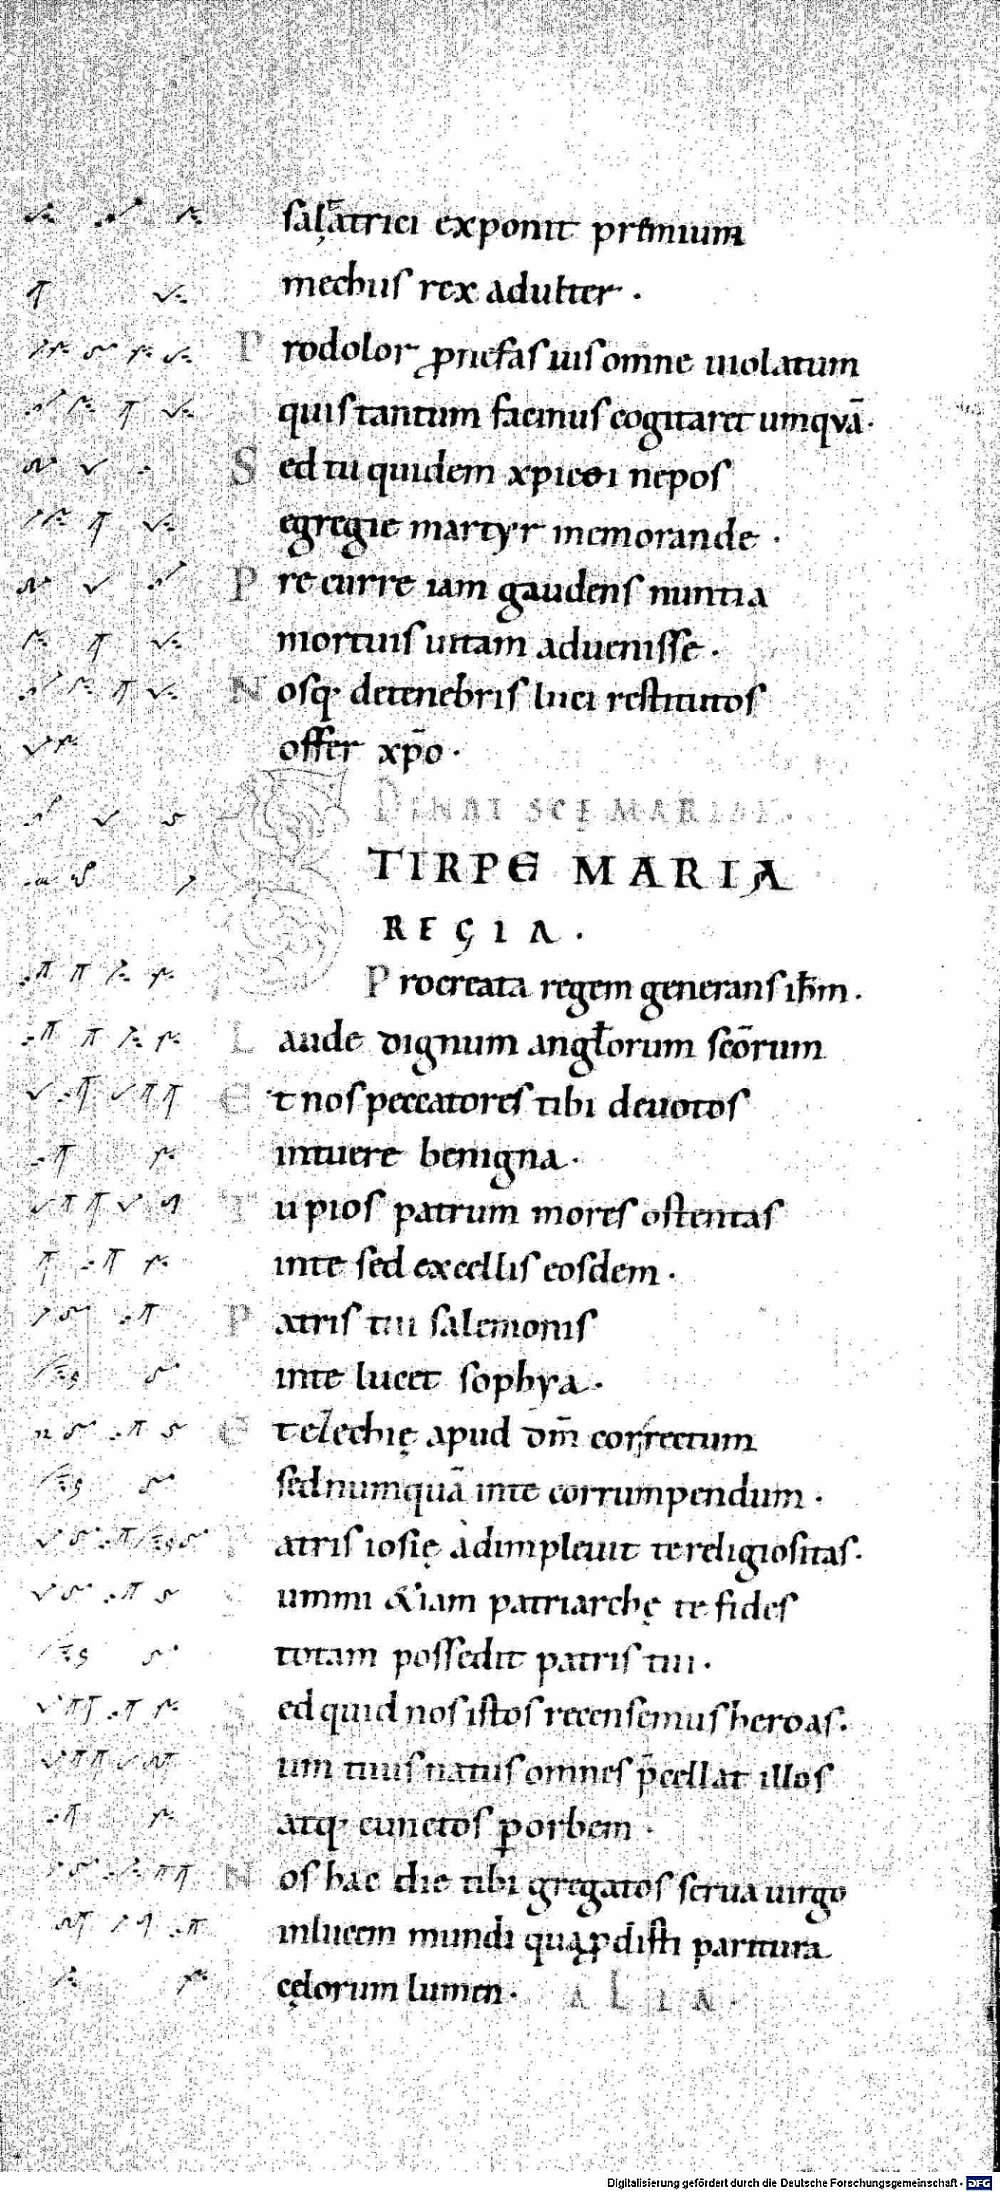 salatrici exponit premium
mechus rex adulter .
Prodolor ꝓnefas uis omne uiolatum
quis tantum facinus cogitaret umquā .
Sed tu quidem xpicoi nepos
egregie martyr memorande .
Precurre iam gaudens nuntia
mortuis uitam aduenisse .
Nosq; detenebris luci restitutos
offer xp̄o .
DENAT SCĘ MARIAE .
STIRPE MARIA
REGIA .
Procreata regem generans ihm̄ .
Laude dignum anglorum scōrum
Et nos peccatores tibi deuotos
intuere benigna .
Tu pios patrum mores ostentas
inte sed excellis eosdem .
Patris tui salemonis
inte lucet sophya .
Et ezechię apud dm̄ correctum
sed numquā inte corrumpendum .
Patris iosię adimpleuit te religiositas .
Summi &iam patriarchę te fides
totam possedit patris tui .
Sed quid nos istos recensemus heroas .
Cum tuus natus omnes p̄cellat illos
atq; cunctos ꝑ orbem .
Nos hac die tibi gregatos serua uirgo
inlucem mundi qua ꝓdisti paritura
cęlorum lumen . ALIA .
Digitalisierung gefördert durch die Deutsche Forschungsgemeinschaft - DFG